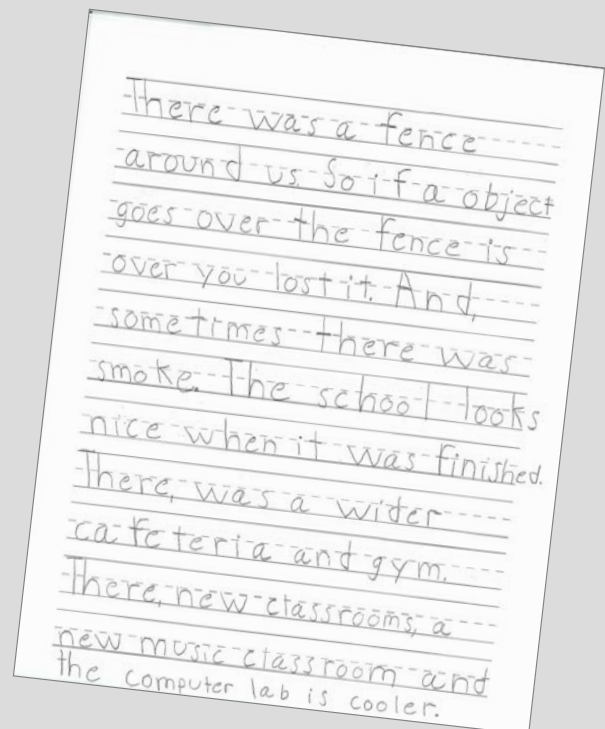 There was a fence
around us. So if a object
goes over the fence is
over you lost it. And,
sometimes there was
smoke. The school looks
nice when it was finished.
There, was a wider
cafeteria and gym.
There, new classrooms, a
new music classroom and
the computer lab is cooler.